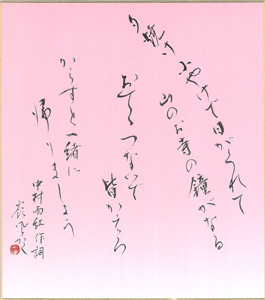 夕焼け小やけで日がくれて
山のお寺の鐘がなる
おてつないで
皆かえろ
からすと一緒に
帰りましょう
中村雨紅作詞